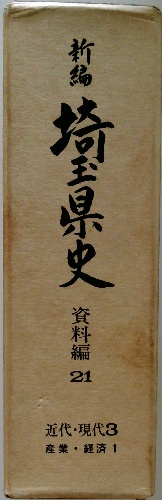 新編
埼玉県史
資料編
21
近代・現代3
産業・経済1